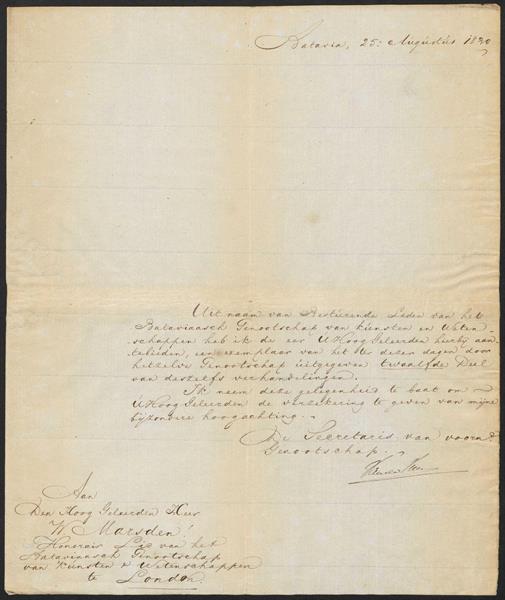 Batavia, 25: Augustus 1830
Uit naam van Besturende Leden van het
Bataviaasch Genootschap van kunsten en Weten-
schappen heb ik de eer UHoog Geleerden hierbij aan
tebieden, een exemplaar van het dezer dagen door
hetzelve Genootschap uitgegeven twaalfde Deel
van deszelfs verhandelingen.
Ik neem deze gelegenheid te baat om
UHoog Geleerden de verzekering te geven van mijne
bijzondere hoogachting.
De Secretaris van voorn:
Genootschap.
Aan
Den Hoog Geleerden Heer
W. Marsden!
Honorair Lid van het
Bataviaasch Genootschap
van Kunsten & Wetenschappen
te London